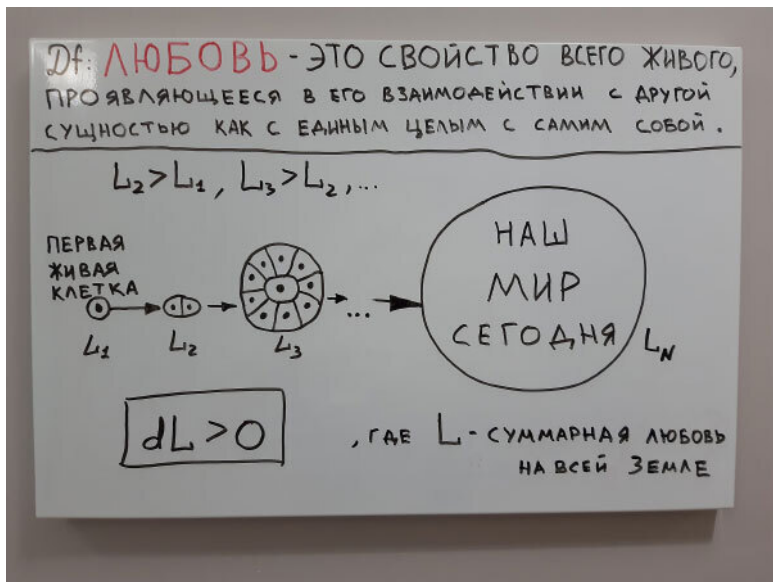 Df: ЛЮБОВЬ - ЭТО СВОЙСТВО ВСЕГО ЖИВОГО,
ПРОЯВЛЯЮЩЕЕСЯ В ЕГО ВЗАИМОДЕЙСТВИИ С ДРУГОЙ
СУЩНОСТЬЮ КАК С ЕДИНЫМ ЦЕЛЫМ С САМИМ СОБОЙ.
L₂>L₁, L₃>L₂,...
ПЕРВАЯ
ЖИВАЯ
КЛЕТКА
L₁
L₂
L₃
...
НАШ
МИР
СЕГОДНЯ
L_N
dL>0
, ГДЕ L - СУММАРНАЯ ЛЮБОВЬ
НА ВСЕЙ ЗЕМЛЕ